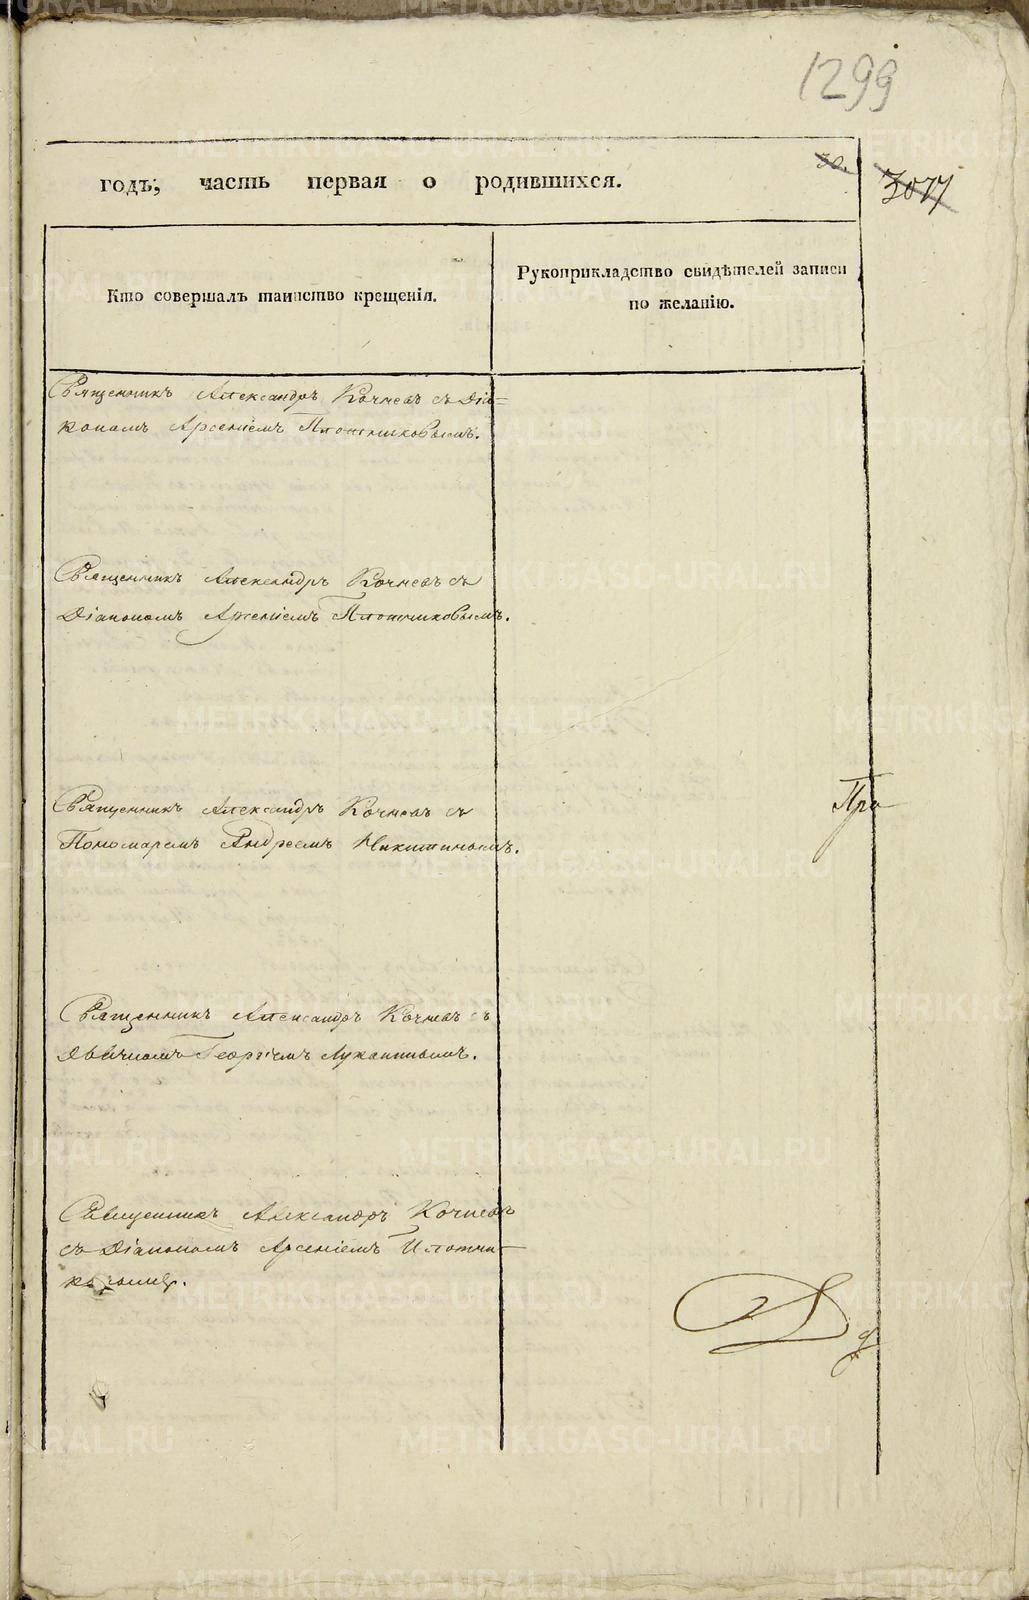 1299
годъ, часть первая о родившихся.
30.
3077
Кто совершалъ таинство крещенія.
Рукоприкладство свидѣтелей записи
по желанію.
Священникъ Александръ Кочневъ съ Діа=
кономъ Арсеніемъ Плотниковымъ.
Священникъ Александръ Кочневъ съ
Діакономъ Арсеніемъ Плотниковымъ.
Священникъ Александръ Кочневъ съ
Пономаремъ Андреемъ Никитинымъ.
Священникъ Александръ Кочневъ съ
Дьячкомъ Георгіемъ Лукинымъ.
Священникъ Александръ Кочневъ
съ Діакономъ Арсеніемъ Плотни-
ковымъ.
При
METRIKI.GASO-URAL.RU